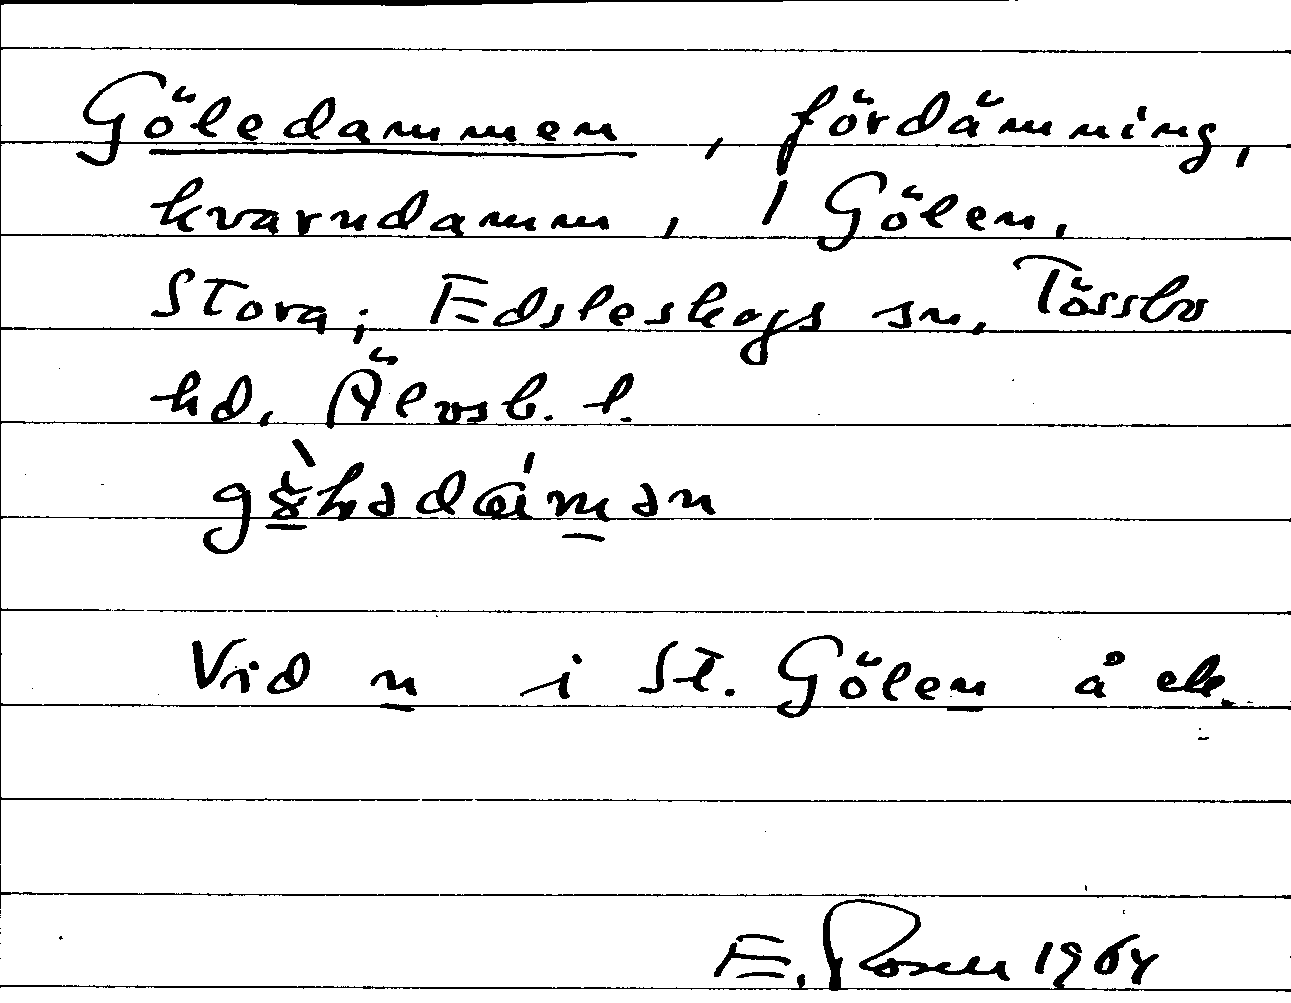 Göledammen, fördämning,
kvarndamm, i Gölen,
Stora; Edsleskogs sn, Tössbo
hd, Älvsb. l.
Vid n i St. Gölen å ek.
E. Rosell 1964